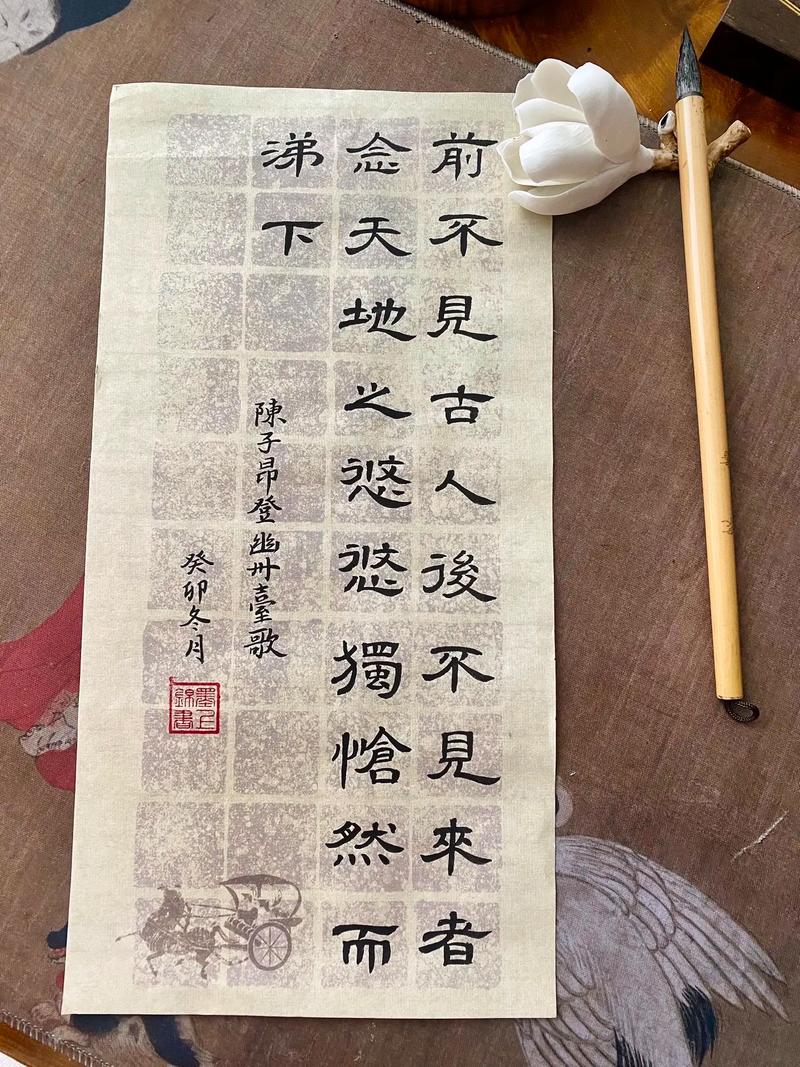 前不見古人後不見來者
念天地之悠悠獨愴然而
涕下
陳子昂登幽州臺歌
癸卯冬月
墨上錦書